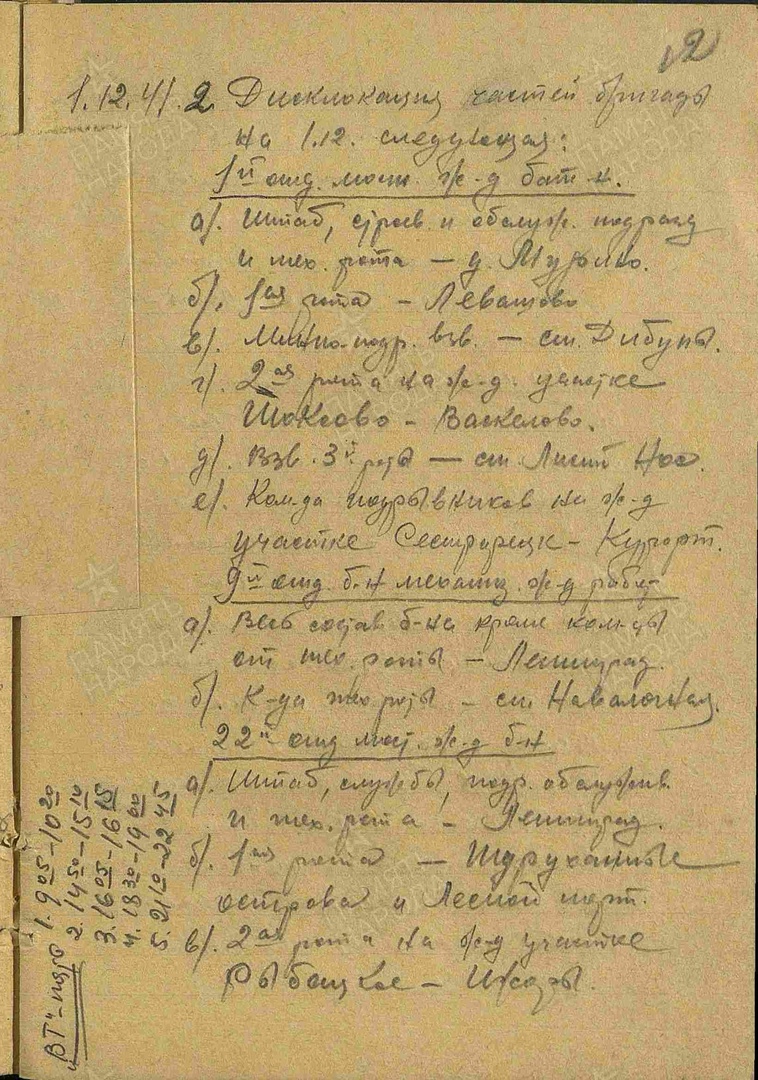 2
1.12.41. 2. Дисклокация частей бригады
на 1.12. следующая:
1й отд. мост. ж-д бат-н.
а). Штаб, строев и обслуж. подразд
и тех. рота – д. Мурино.
б). 1ая рота – Левашово
в). Минно-подр. взв. – ст. Дибуны.
г). 2ая рота на ж-д. участке
Токсово – Васкелово.
д). Взв. 3й роты – ст. Лисий Нос.
е). Ком-да подрывников на ж-д
участке Сестрорецк – Курорт.
9й отд. б-н механиз. ж-д работ
а). Весь состав б-на кроме ком-ды
от тех. роты – Ленинград.
б). К-да тех роты – ст. Навалочная.
22й отд мост. ж-д б-н
а). Штаб, службы, подр. обслужив.
и тех. рота – Ленинград.
б). 1ая рота – Турухтанные
острова и Лесной порт.
в). 2ая рота на ж-д участке
Рыбацкое – Ижоры.
"ВТ"
1. 9 05 – 10 20
2. 14 50 – 15 10
3. 16 05 – 16 15
4. 18 30 – 19 00
5. 21 10 – 22 45
ПАМЯТЬ
НАРОДА